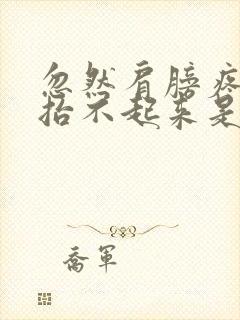 忽然肩膀疼
抬不起来是
乔军